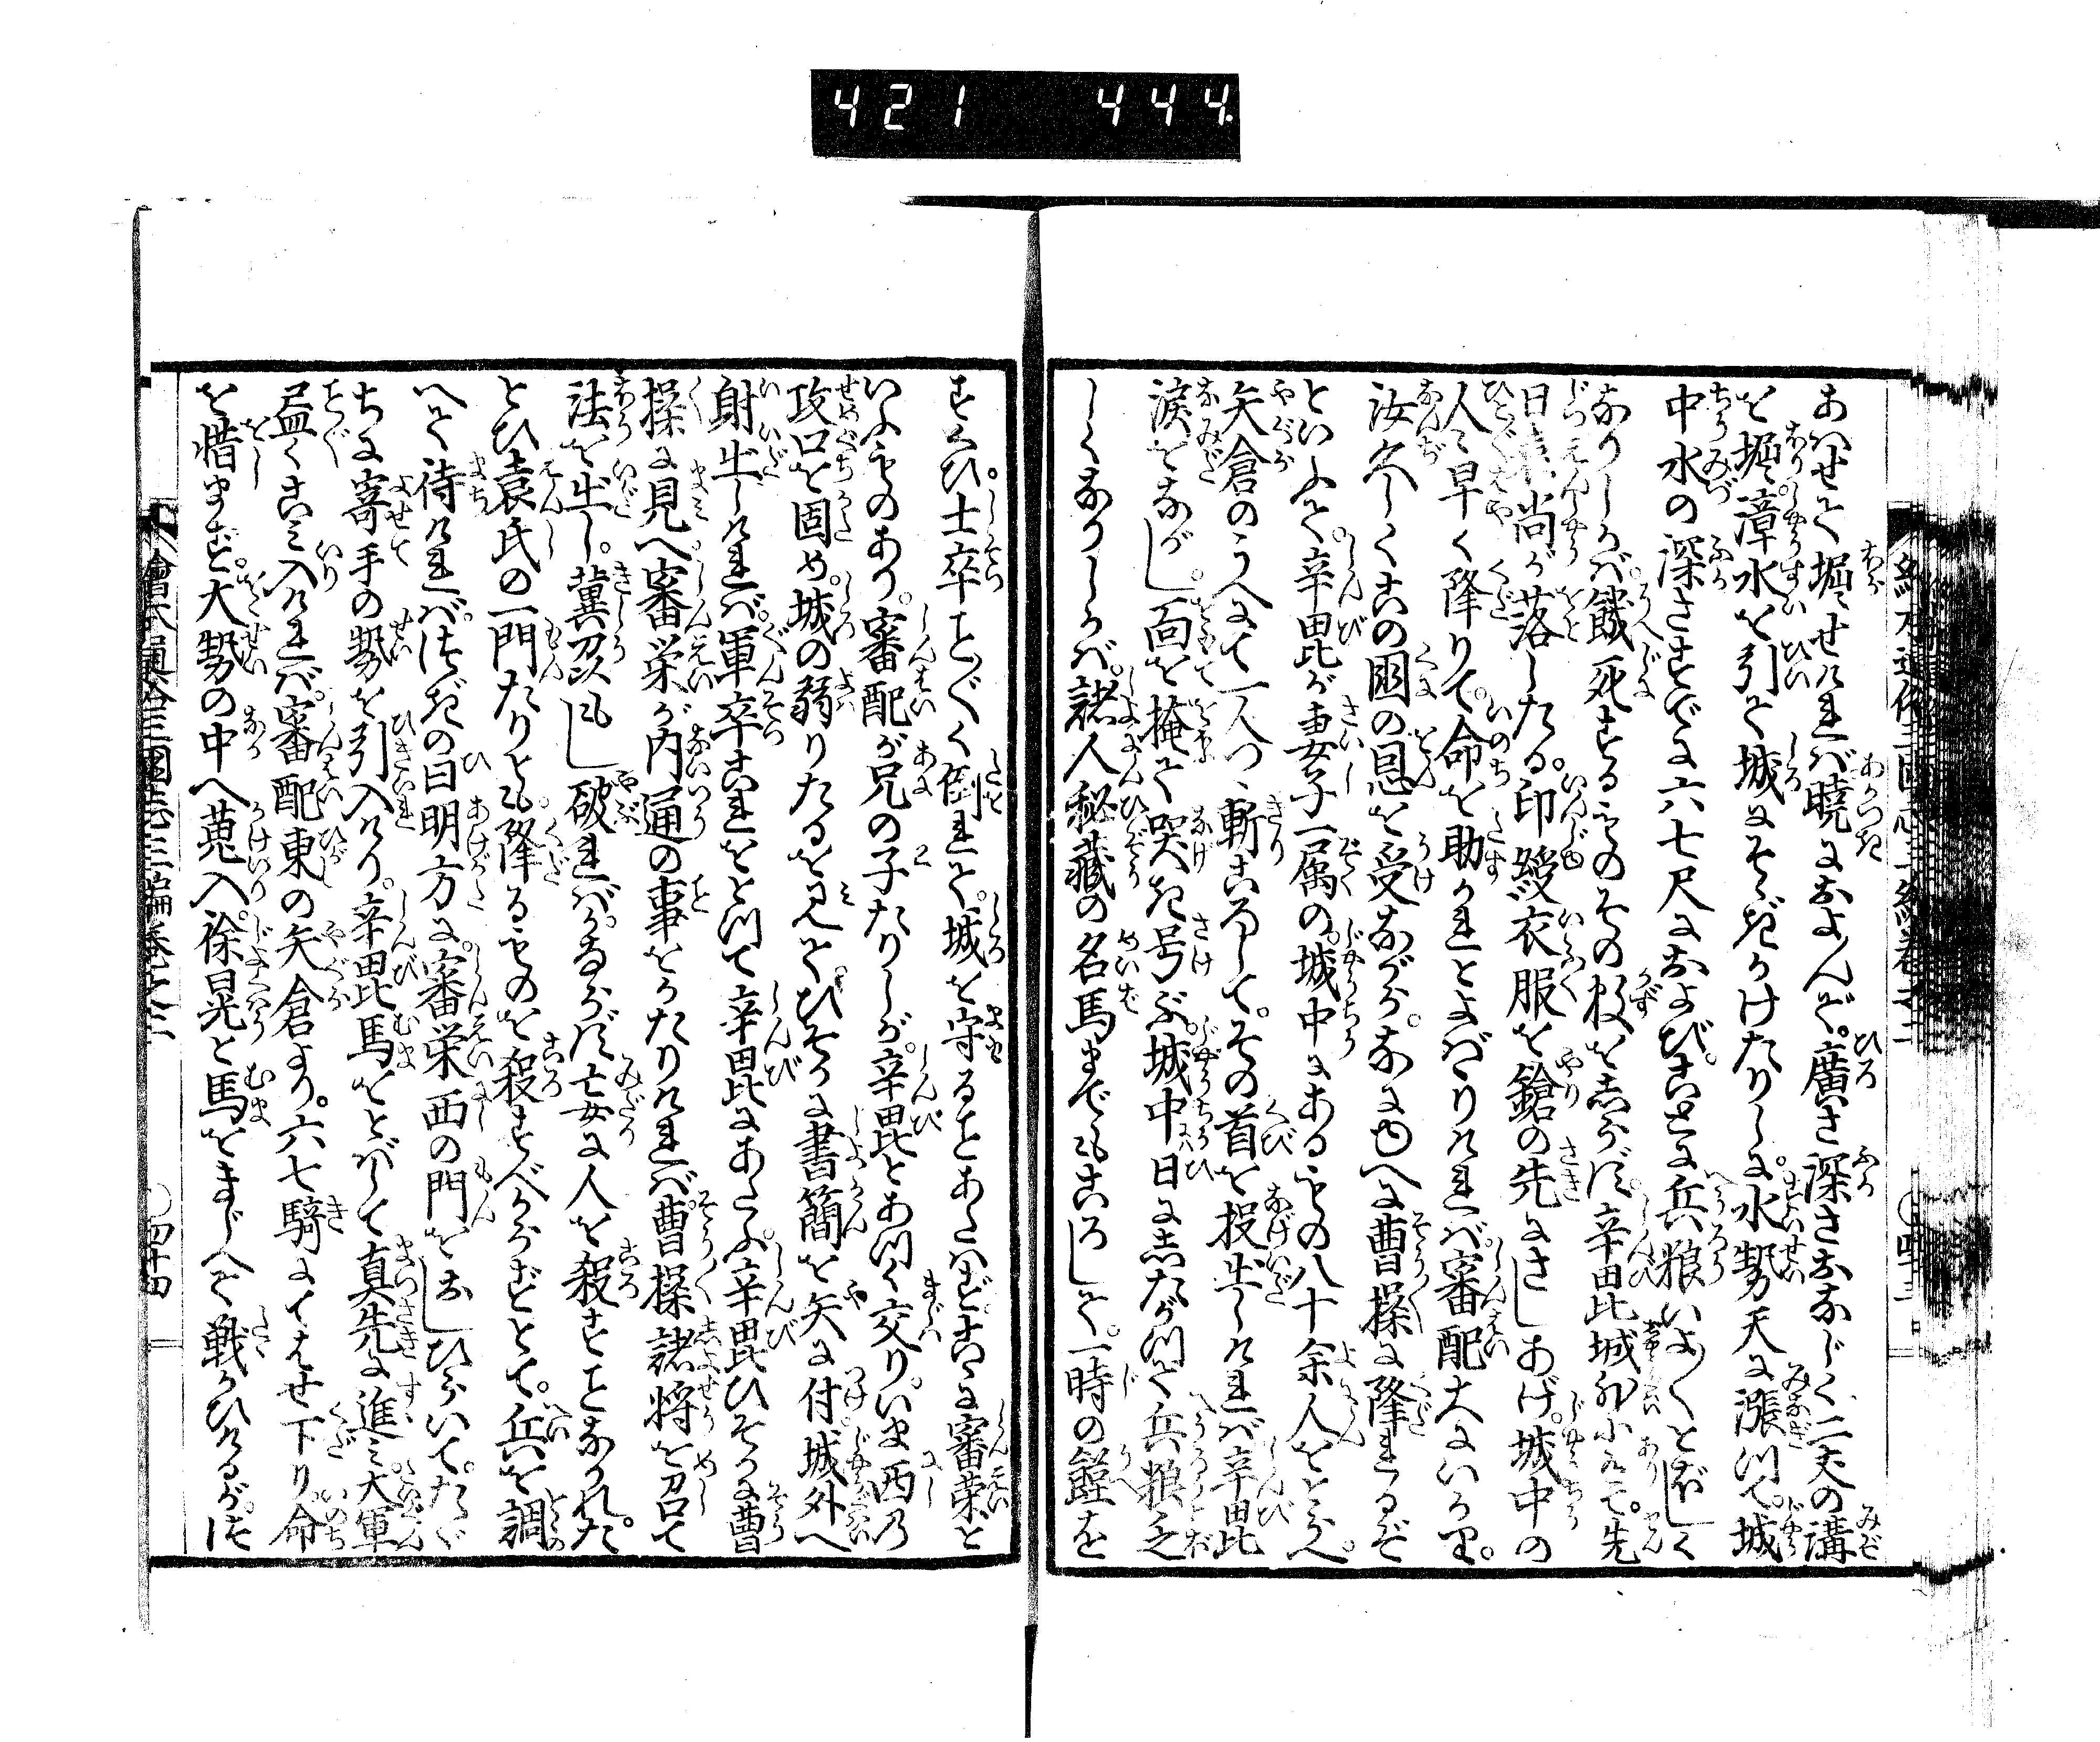 421 444
あはせて堀せければ暁におよんで。廣さ深さおなじく二丈の溝
を堀。漳水を引て城にそゝぎかけたりしに。水勢天に漲つて。城
中水の深さすでに六七尺におよび。ことに兵粮いよ〳〵とぼしく
なりしかば。餓死するものその数をしらず。辛毗城外にて。先
日袁尚が落したる。印綬衣服を鎗の先にさしあげ。城中の
人々早く降りて。命を助かれとよばゝりければ。審配大にいかり。
汝久しくこの國の恩を受ながら。なにゆへに曹操に降れるぞ
といふて。辛毗が妻子一属の。城中にあるもの八十余人をとらへ。
矢倉のうへにて一人づゝ斬ころして。その首を投出しければ辛毗
涙をながし。面を掩て哭き号ぶ。城中日にしたがつて兵粮乏
しくなりしかば。諸人秘蔵の名馬までもころして。一時の饉を
すくひ。士卒ことごとく倒れて。城を守ることあたはず。こゝに審栄と
いふものあり。審配が兄の子たりしが。辛毗とあつく交り。いま西の
攻口を固め。城の弱りたるを見て。ひそかに書簡を矢に付。城外へ
射出しければ。軍卒これをとつて辛毗にあたふ。辛毗ひそかに曹
操に見へ。審栄が内通の事をかたりければ。曹操諸将を召て
法を出し。冀州もし破ればかならず亡女に人を殺すことなかれ。た
とひ袁氏の一門たりとも。降るものを殺すべからずとて。兵を調
へて待ければ。つぎの日明方に。審栄西の門をおしひらいて。たゞ
ちに寄手の勢を引入けり。辛毗馬をとばして真先に進み。大軍
尽くこみ入ければ。審配東の矢倉より。六七騎にてはせ下り。命
を惜まず。大勢の中へ蒐入。徐晃と馬をまじへて戦かひけるが。つ
繪本通俗三國志三編巻之三
四十四